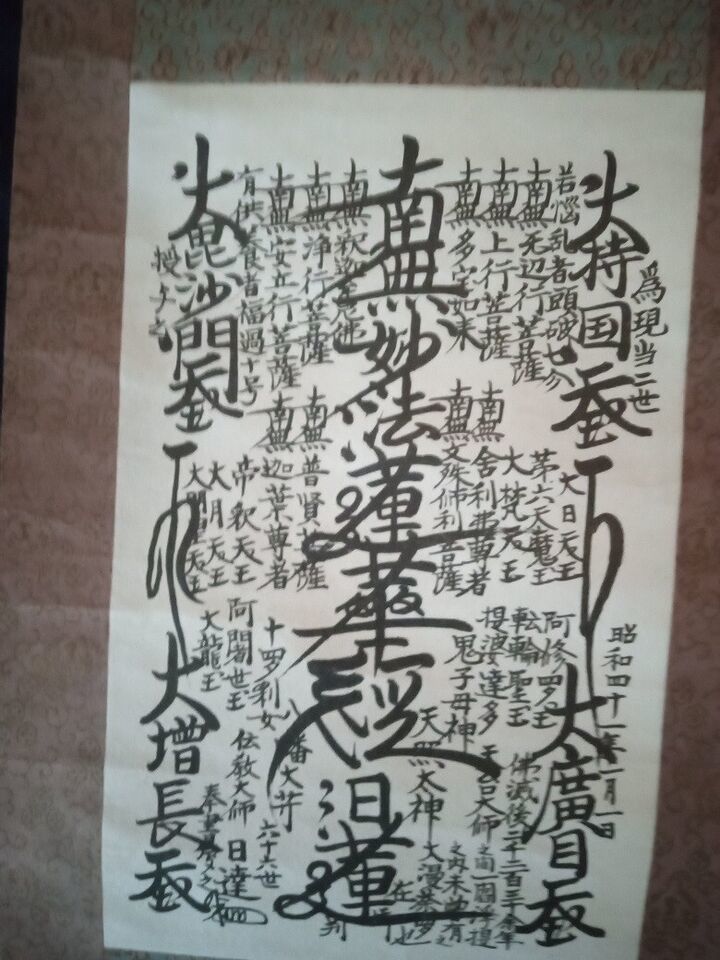 為現当二世
昭和四十一年一月一日
大持国天王
大廣目天王
若悩乱者頭破七分
南無无辺行菩薩
南無上行菩薩
南無多宝如来
大日天王
第六天魔王
大梵天王
南無舎利弗尊者
南無文殊師利菩薩
阿修羅王
転輪聖王
提婆達多
鬼子母神
天照太神
天台大師
佛滅後二千二百三十余年
之間一閻浮提
之内未曽有之
大漫荼羅
也
南無妙法蓮華経
日蓮
在御判
南無釈迦牟尼佛
南無浄行菩薩
南無安立行菩薩
有供養者福過十号
南無普賢菩薩
南無迦葉尊者
帝釈天王
大月天王
大明星天王
十羅刹女
阿闍世王
大龍王
八幡大菩薩
伝教大師
六十六世
日達
奉書写之
大毘沙門天王
授与之
大増長天王